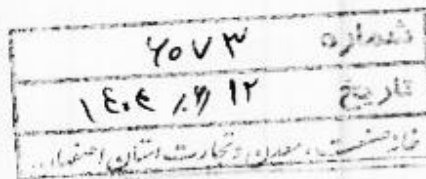 شماره ۲۰۷۳
تاریخ ۱۴۰۴/۶/۱۲
خانه صنعت، معدن و تجارت استان اصفهان